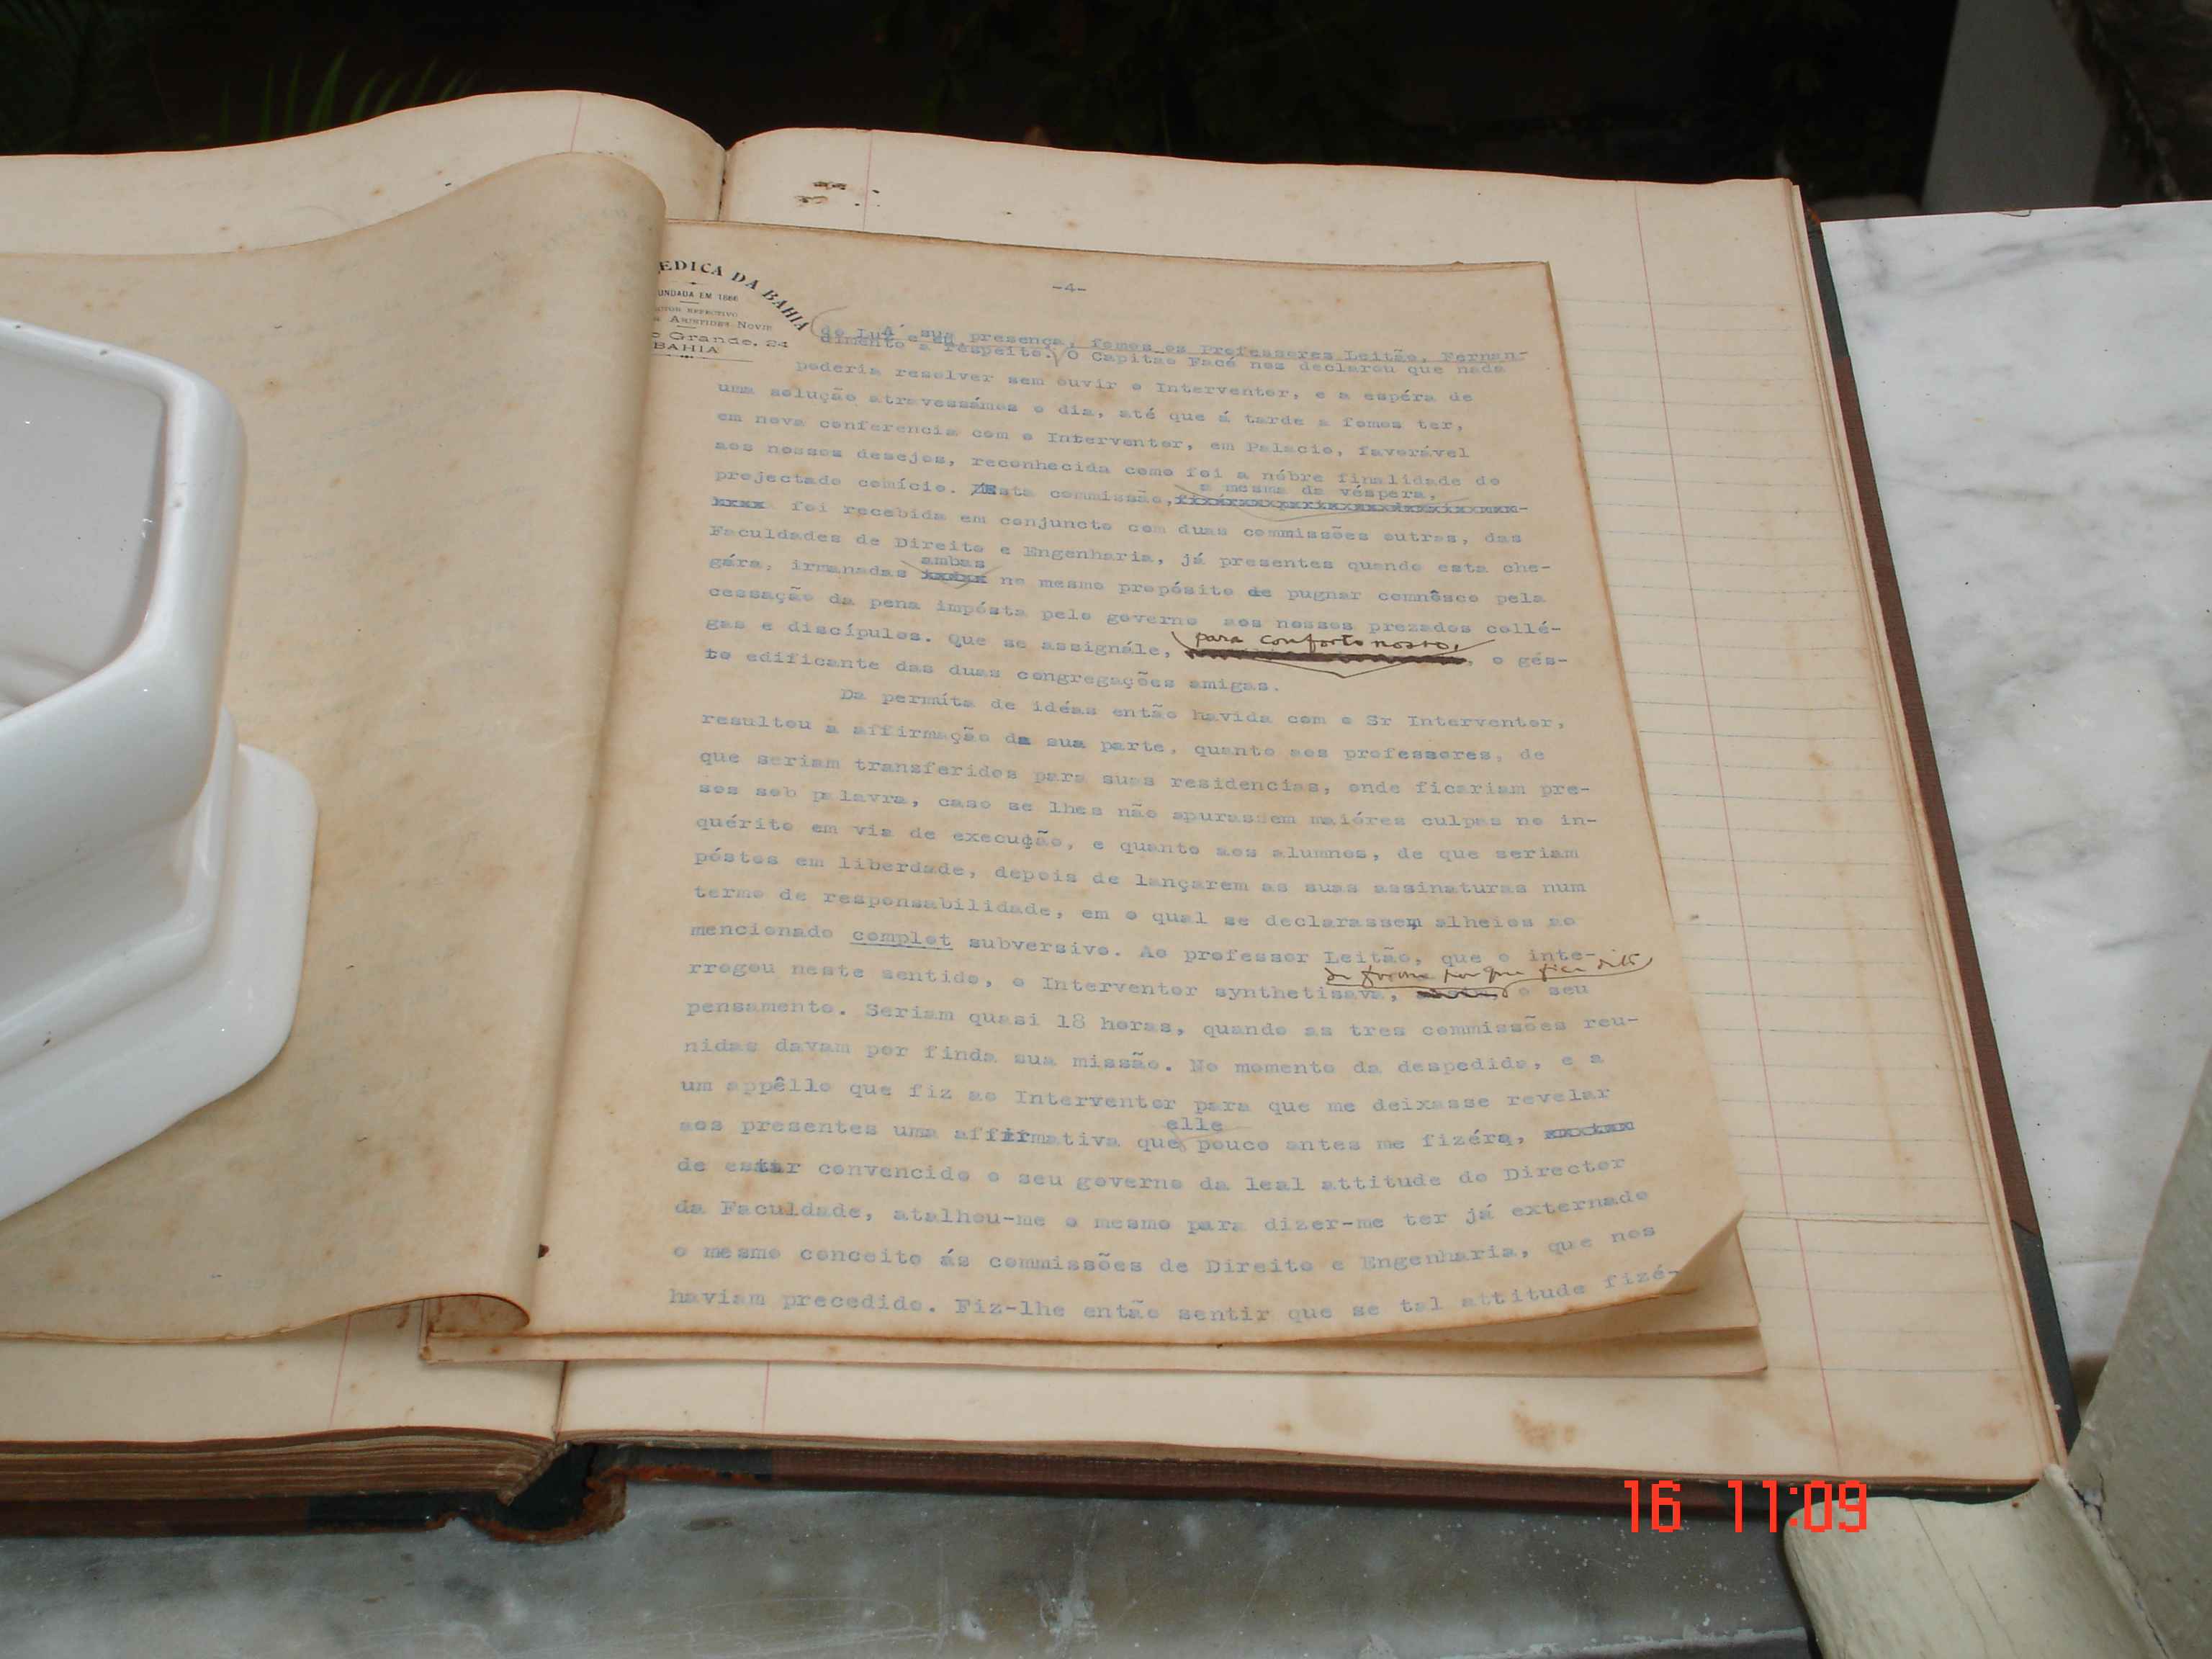 EDICA DA BAHIA
UNDADA EM 1866
EFFECTIVO
ARISTIDES NOVIS
Grande, 24
BAHIA
-4-
A' sua presença, fomos os Professores Leitão, Fernan-
do Luz e eu,
dimento a respeito. O Capitão Facó nos declarou que nada
poderia resolver sem ouvir o Interventor, e a espéra de
uma solução atravessámos o dia, até que á tarde a fomos ter,
em nova conferencia com o Interventor, em Palacio, favorável
aos nossos desejos, reconhecida como foi a nóbre finalidade do
projectado comício. Esta commissão, a mesma da véspera,
foi recebida em conjuncto com duas commissões outras, das
Faculdades de Direito e Engenharia, já presentes quando esta che-
gára, irmanadas ambas no mesmo propósito de pugnar comnôsco pela
cessação da pena impósta pelo governo aos nossos prezados collé-
gas e discípulos. Que se assignále, para conforto nosso, o gés-
to edificante das duas congregações amigas.
Da permúta de idéas então havida com o Sr Interventor,
resultou a affirmação da sua parte, quanto aos professores, de
que seriam transferidos para suas residencias, onde ficariam pre-
sos sob palavra, caso se lhes não apurassem maióres culpas no in-
quérito em via de execução, e quanto aos alumnos, de que seriam
póstos em liberdade, depois de lançarem as suas assinaturas num
termo de responsabilidade, em o qual se declarassem alheios ao
mencionado complot subversivo. Ao professor Leitão, que o inte-
rrogou neste sentido, o Interventor synthetisava, da forma por que fica dito o seu
pensamento. Seriam quasi 18 horas, quando as tres commissões reu-
nidas davam por finda sua missão. No momento da despedida, e a
um appêllo que fiz ao Interventor para que me deixasse revelar
aos presentes uma affirmativa que elle pouco antes me fizéra,
de estar convencido o seu governo da leal attitude do Director
da Faculdade, atalhou-me o mesmo para dizer-me ter já externado
o mesmo conceito ás commissões de Direito e Engenharia, que nos
haviam precedido. Fiz-lhe então sentir que se tal attitude fizé-
16 11:09